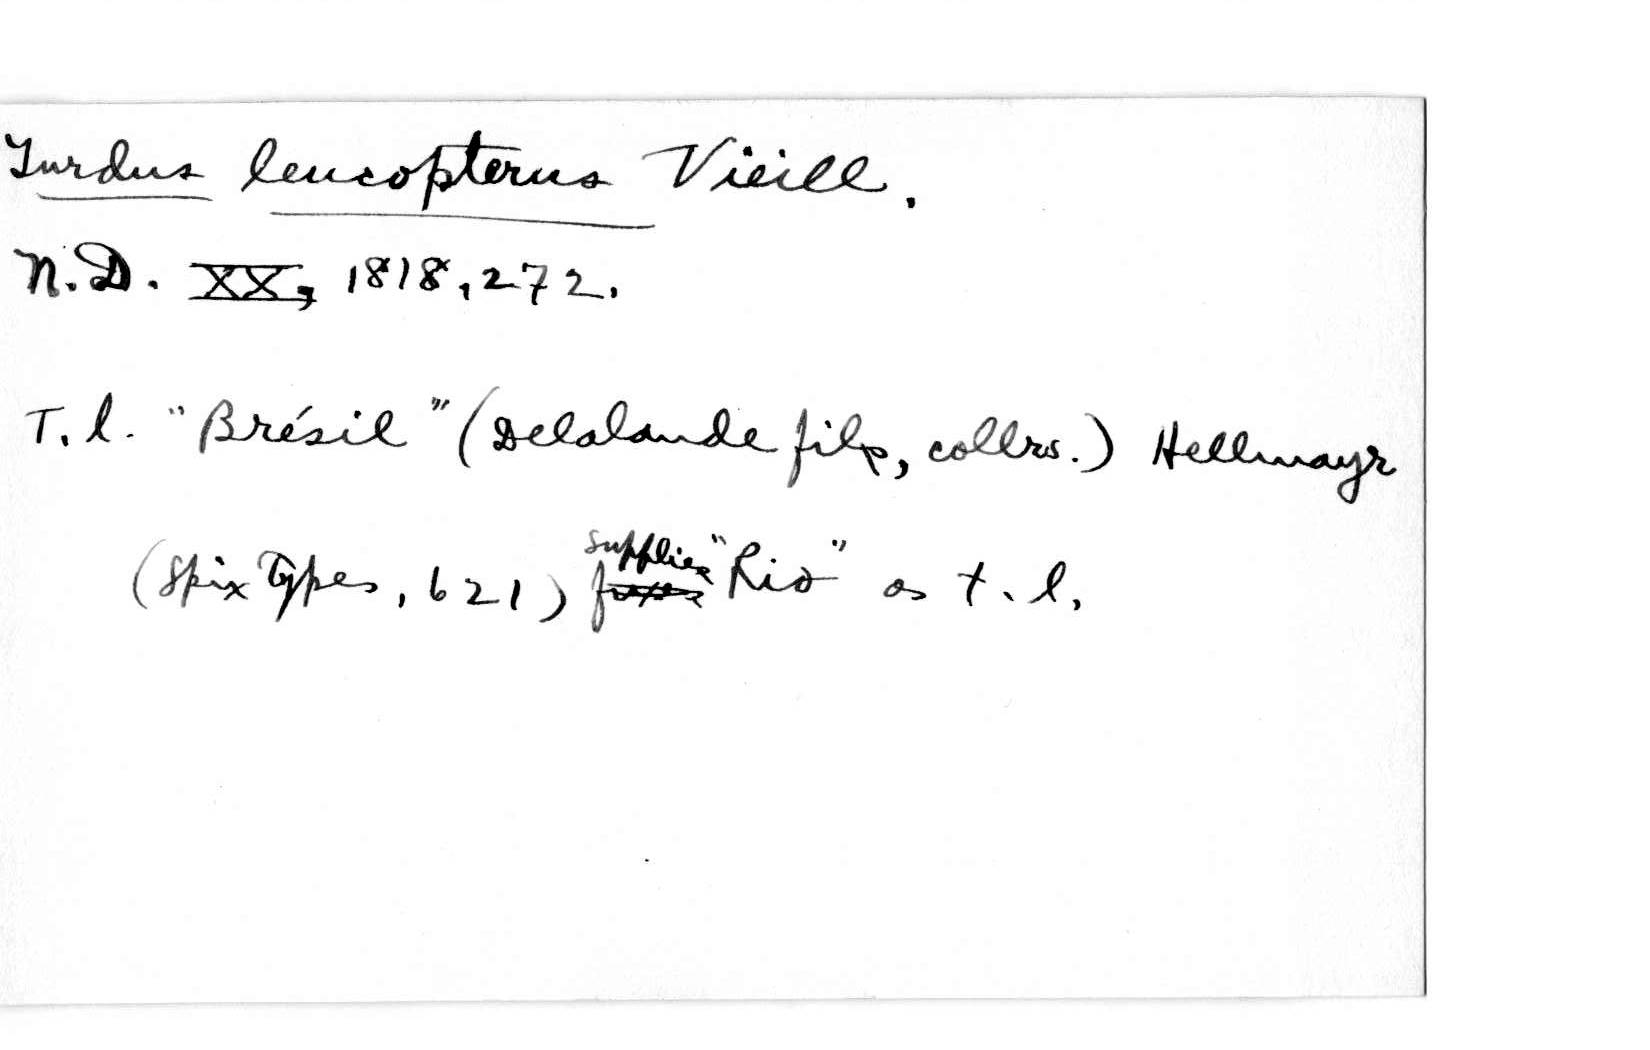 Turdus leucopterus Vieill.
N.D. XX, 1818, 272.
T. l. "Brésil" (Delalande fils, collrs.) Hellmayr
(Spix Types, 621) supplies "Rio" as t. l.